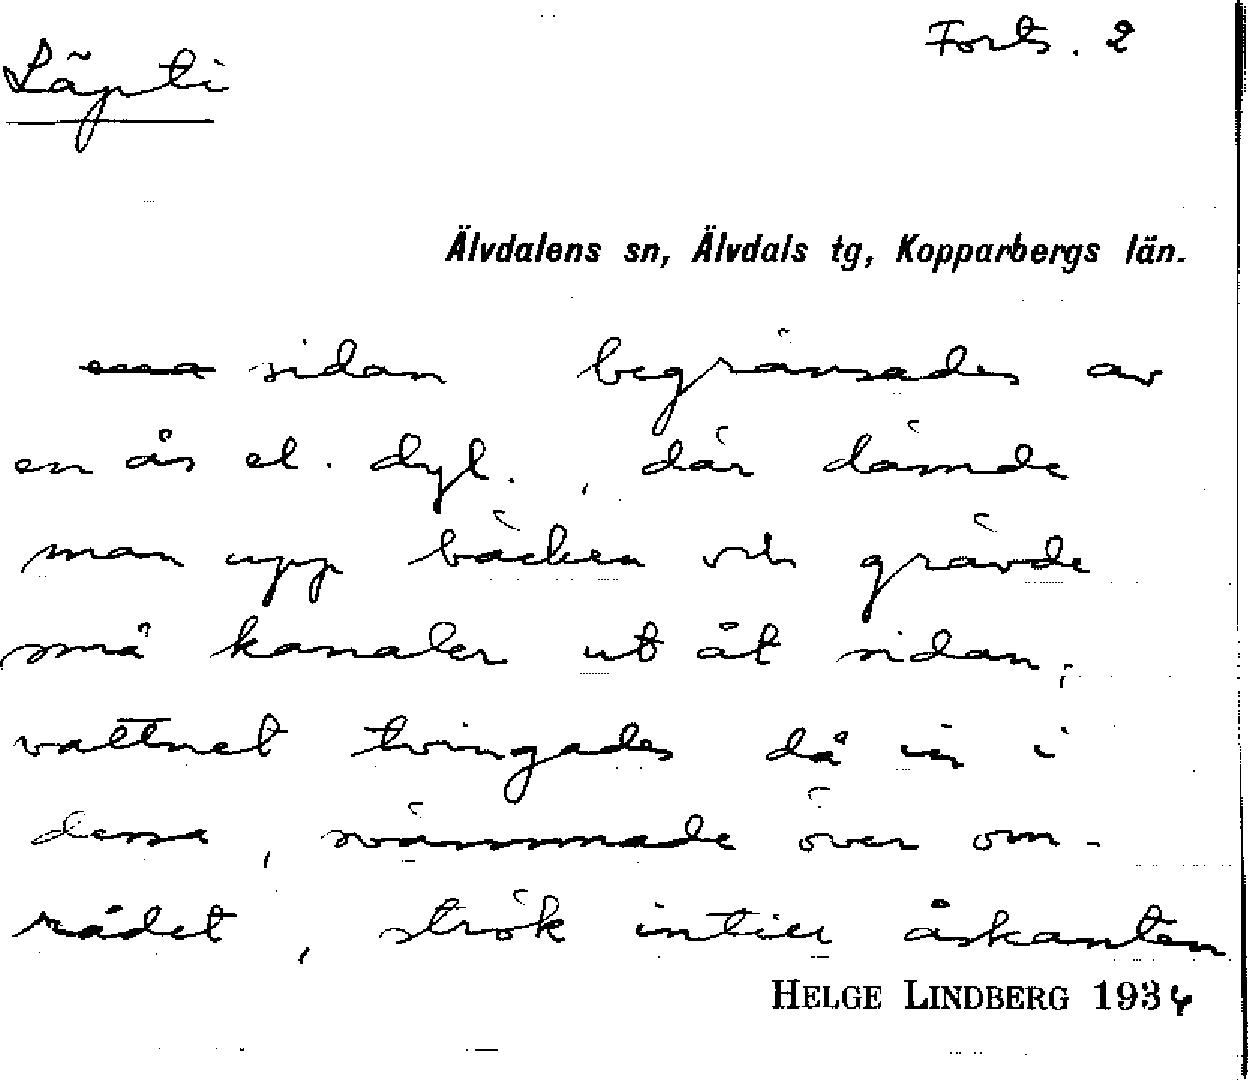 Läpti
Forts. 2
Älvdalens sn, Älvdals tg, Kopparbergs län.
sidan begränsades av
en ås el. dyl., där dämde
man upp bäcken och grävde
små kanaler ut åt sidan,
vattnet tvingades då in i
dessa, svämmade över om-
rådet, strök intill åskanten
HELGE LINDBERG 1936